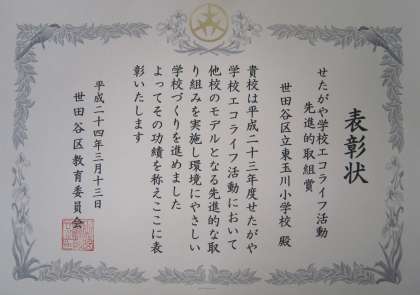 表彰状
せたがや学校エコライフ活動
先進的取組賞
世田谷区立東玉川小学校 殿
貴校は平成二十三年度せたがや
学校エコライフ活動において
他校のモデルとなる先進的な取
り組みを実施し環境にやさしい
学校づくりを進めました
よってその功績を称えここに表
彰いたします
平成二十四年三月十三日
世田谷区教育委員会